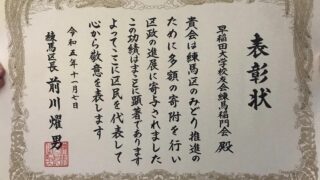 表彰状
早稲田大学校友会練馬稲門会 殿
貴会は練馬区のみどり推進の
ために多額の寄附を行い
区政の進展に寄与されました
この功績はまことに顕著であります
よってここに区民を代表して
心から敬意を表します
令和五年十一月七日
練馬区長 前川燿男